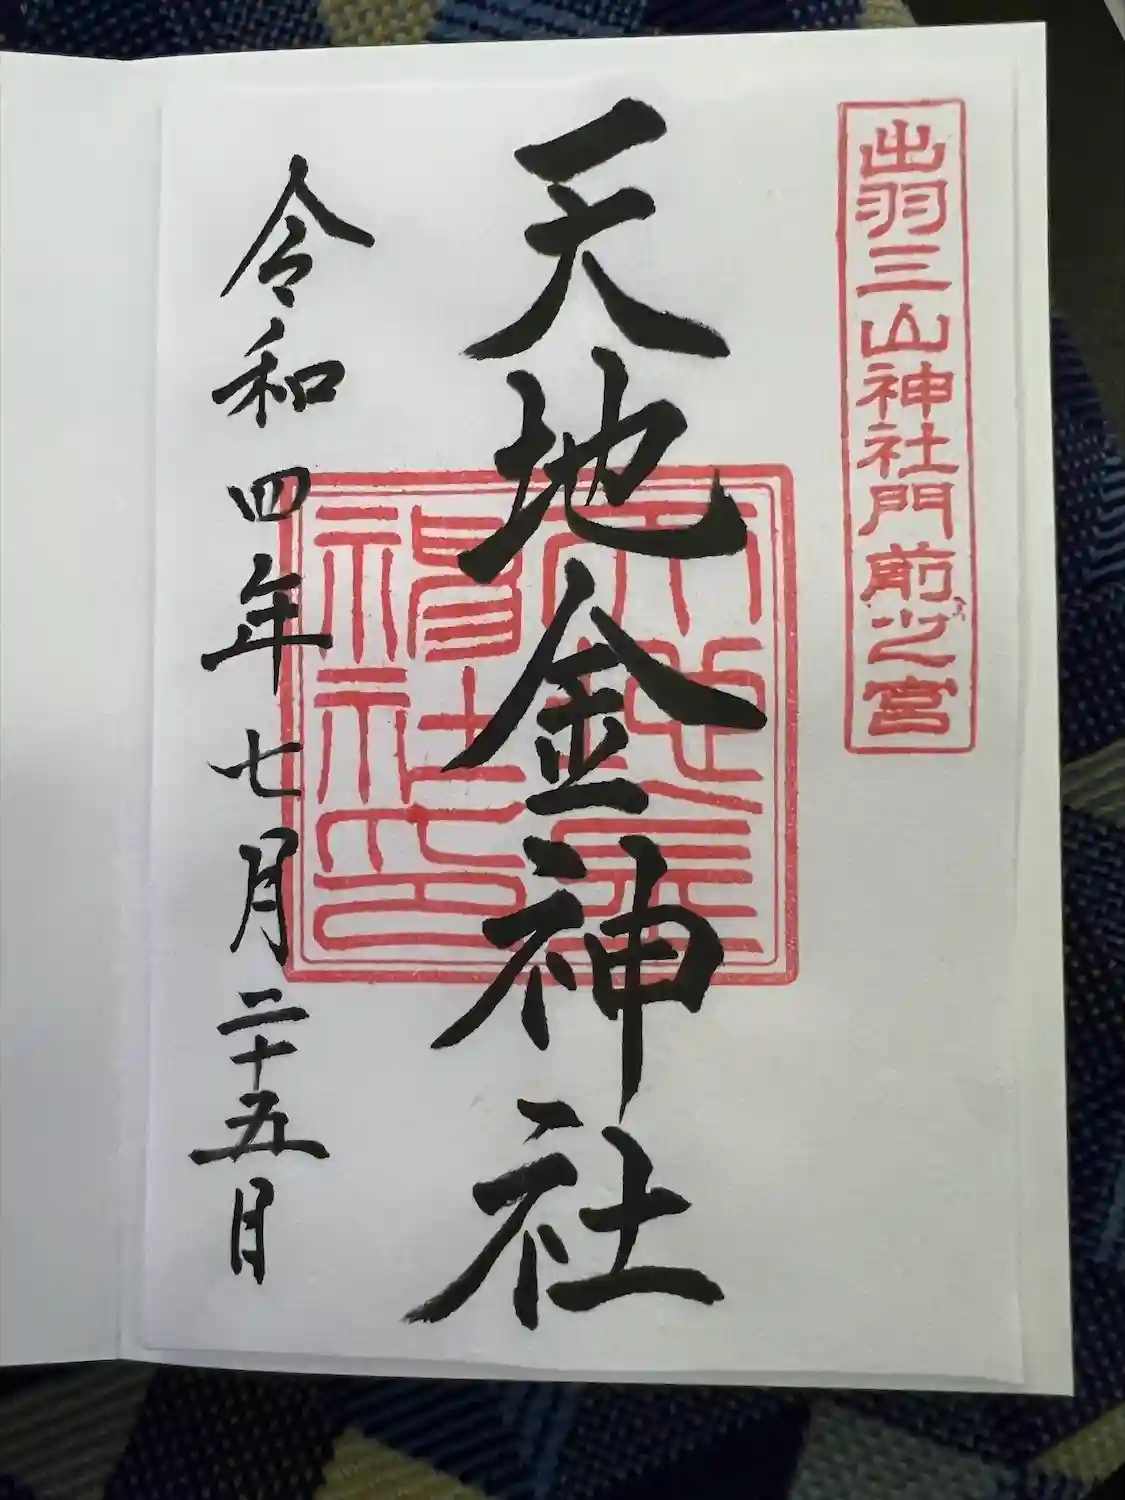 出羽三山神社門前之宮
天地金神社
天地金神社印
令和四年七月二十五日